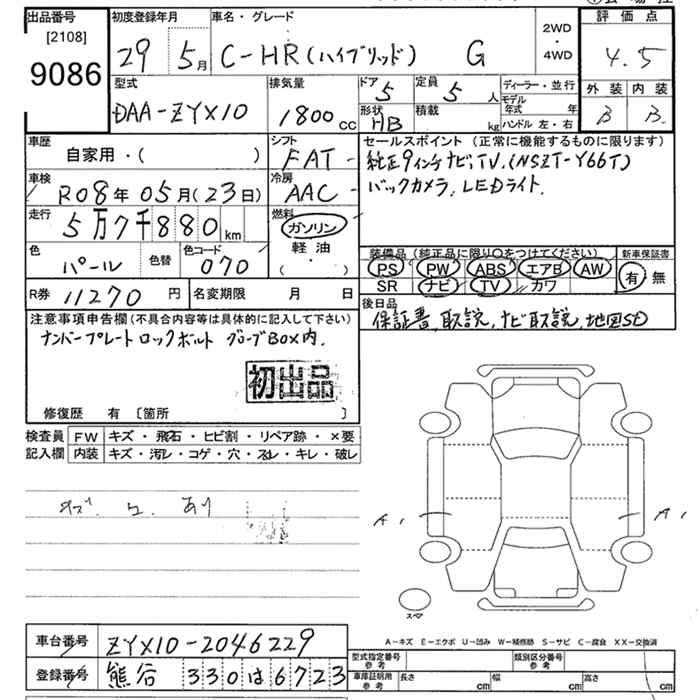 出品番号 初度登録年月 車名・グレード 評価点
[2108]
9086
29 5月 C-HR(ハイブリッド) G 2WD・4WD 4.5
型式 排気量 ドア 定員 ディーラー・並行 外装 内装
DAA-ZYX10 1800cc 5 5人 モデル年式 年 B B
形状 積載 ハンドル 左・右
HB kg
車歴 シフト セールスポイント(正常に機能するものに限ります)
自家用・( ) FAT- 純正9インチナビ,TV.(NSZT-Y66T)
車検 冷房 バックカメラ.LEDライト.
R08年05月(23日) AAC-
走行 燃料
5万7千880km ガソリン
軽油
( ・ )
色 色替 色コード 装備品(純正品に限り○をつけてください) 新車保証書
パール 070 PS PW ABS エアB AW 有 無
SR ナビ TV カワ
R券 11270円 名変期限 月 日 後日品
保証書,取説,ナビ取説,地図SD
注意事項申告欄(不具合内容等は具体的に記入して下さい)
ナンバープレートロックボルト グローブBOX内.
初出品
修復歴 有 〔箇所 〕
検査員 FW キズ・飛石・ヒビ割・リペア跡・×要
記入欄 内装 キズ・汚レ・コゲ・穴・スレ・キレ・破レ
あり
A, A,
スペア
車台番号 ZYX10-2046229
登録番号 熊谷 330は6723
A-キズ E-エクボ U-凹み W-補修跡 S-サビ C-腐食 XX-交換済
型式指定番号 参考 類別区分番号 参考
車庫証明用 参考 長さ cm 幅 cm 高さ cm